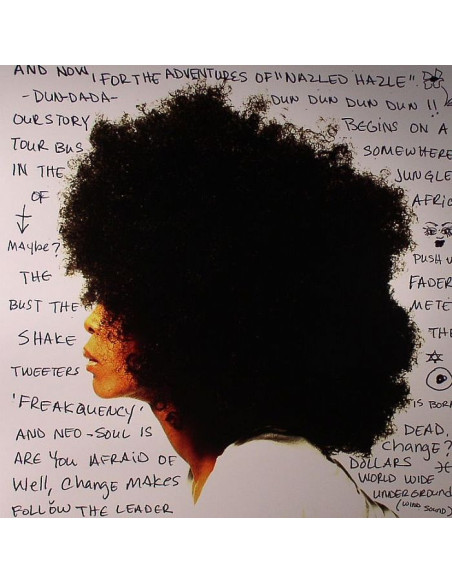 AND NOW, FOR THE ADVENTURES OF "NAZLED HAZLE"
-DUN-DADA- DUN DUN DUN DUN !!
OUR STORY BEGINS ON A
TOUR BUS SOMEWHERE
IN THE JUNGLE
OF AFRIC
MAYBE? PUSH U
THE FADER
BUST THE METE
SHAKE THE
TWEETERS
'FREAKQUENCY' IS BOR
AND NEO-SOUL IS DEAD,
ARE YOU AFRAID OF CHANGE?
Well, CHANGE MAKES DOLLARS
FOLLOW THE LEADER WORLD WIDE
UNDERGROUND
(WIND SOUND)